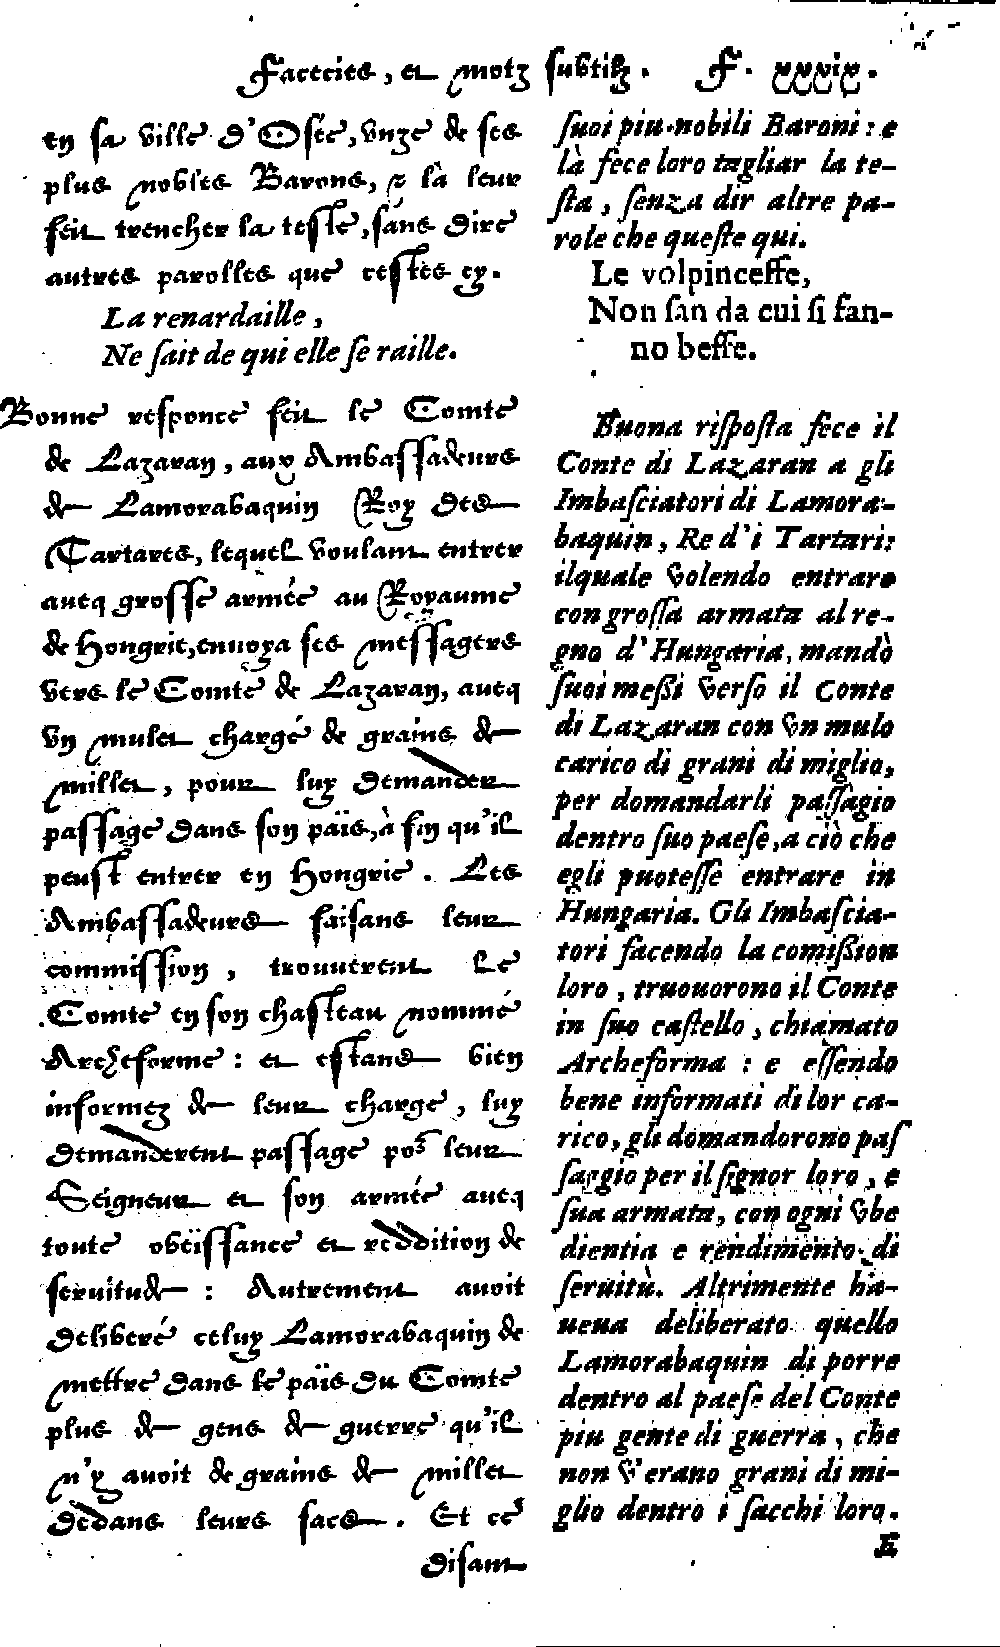 Facecies, et motz subtilz. F. xxxix.
en sa ville d'Osée, vnze de ses
plus nobles Barons, & là leur
feit trencher la teste, sãs dire
autres parolles que cestes cy.
La renardaille,
Ne sait de qui elle se raille.
Bonne responce feit le Comte
de Lazaran, aux Ambassadeurs
de Lamorabaquin Roy des
Tartares, lequel voulant entrer
aueq grosse armée au Royaume
de Hongrie, enuoya ses messagers
vers le Comte de Lazaran, aueq
vn mulet chargé de grains de
millet, pour luy demander
passage dans son païs, à fin qu'il
peust entrer en Hongrie. Les
Ambassadeurs faisans leur
commission, trouuerent le
Comte en son chasteau nommé
Archeforme: et estans bien
informez de leur charge, luy
demanderent passage po^r leur
Seigneur et son armée aueq
toute obeïssance et reddition de
seruitude: Autrement auoit
deliberé celuy Lamorabaquin de
mettre dans le païs du Comte
plus de gens de guerre qu'il
n'y auoit de grains de millet
dedans leurs sacs. Et ce
disant
suoi piu nobili Baroni: e
là fece loro tagliar la te-
sta, senza dir altre pa-
role che queste qui.
Le volpincesse,
Non san da cui si fan-
no beffe.
Buona risposta fece il
Conte di Lazaran a gli
Imbasciatori di Lamora-
baquin, Re d'i Tartari:
ilquale volendo entrare
con grossa armata al re-
gno d'Hungaria, mandò
suoi meßi verso il Conte
di Lazaran con vn mulo
carico di grani di miglio,
per domandarli passagio
dentro suo paese, a ciò che
egli puotesse entrare in
Hungaria. Gli Imbascia-
tori facendo la comißion
loro, truouorono il Conte
in suo castello, chiamato
Archeforma: e essendo
bene informati di lor ca-
rico, gli domandorono pas
saggio per il signor loro, e
sua armata, con ogni vbe
dientia e rendimento di
seruitù. Altrimente ha-
ueua deliberato quello
Lamorabaquin di porre
dentro al paese del Conte
piu gente di guerra, che
non v'erano grani di mi-
glio dentro i sacchi loro.
E